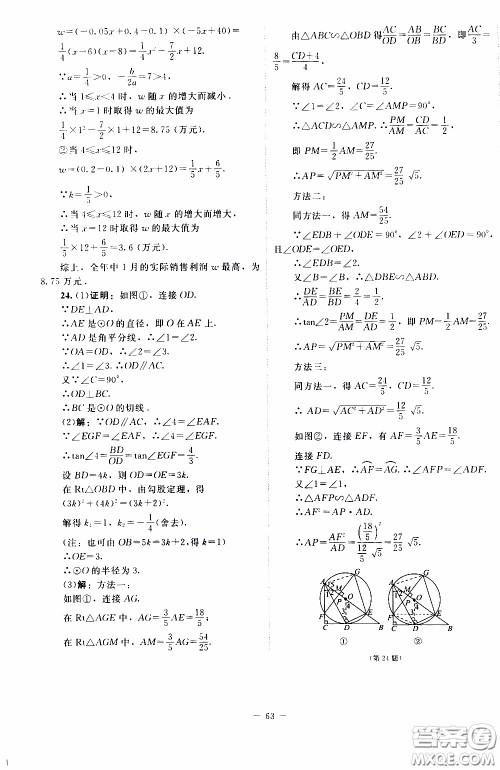 w=(-0.05x+0.4-0.1)×(-5x+40)=
1/4(x-6)(x-8)=1/4x²-7/2x+12.
∵a=1/4>0，-b/2a=7>4，
∴当1≤x<4时，w随x的增大而减小.
∴当x=1时取得w的最大值为
1/4×1²-7/2×1+12=8.75(万元).
②当4≤x≤12时，
w=(0.2-0.1)×(2x+12)=1/5x+6/5.
∵k=1/5>0，
∴当4≤x≤12时，w随x的增大而增大，
∴当x=12时取得w的最大值为
1/5×12+6/5=3.6(万元).
综上，全年中1月的实际销售利润w最高，为
8.75万元.
24.(1)证明：如图①，连接OD.
∵DE⊥AD，
∴AE是⊙O的直径，即O在AE上.
∵AD是角平分线，∴∠1=∠2.
∵OA=OD，∴∠2=∠3.
∴∠1=∠3.∴OD∥AC.
又∵∠C=90°，
∴OD⊥BC.
∴BC是⊙O的切线.
(2)解：∵OD∥AC，∴∠4=∠EAF.
∵∠EGF=∠EAF，∴∠4=∠EGF.
∴tan∠4=BD/OD=tan∠EGF=4/3.
设BD=4k，则OD=OE=3k.
在Rt△OBD中，由勾股定理得
(3k)²+(4k)²=(3k+2)².
解得k₁=1，k₂=-1/4(舍去).
(注：也可由OB=5k=3k+2得k=1)
∴OE=3.
∴⊙O的半径为3.
(3)解：方法一：
如图①，连接AG.
在Rt△AGE中，AG=3/5AE=18/5.
在Rt△AGM中，AM=3/5AG=54/25
由△ABC∽△OBD得AC/OD=AB/OB=BC/BD，即AC/3=
8/5=(CD+4)/4.
解得AC=24/5，CD=12/5.
∵∠1=∠2，∠C=∠AMP=90°，
∴△ACD∽△AMP.∴PM/AM=CD/AC=1/2.
即PM=1/2AM=27/25.
∴AP=√(PM²+AM²)=27/25√5.
方法二：
同方法一，得AM=54/25.
∵∠EDB+∠ODE=90°，∠2+∠OED=90°，
且∠ODE=∠OED，
∴∠EDB=∠2.
又∠B=∠B，∴△DBE∽△ABD.
∴DE/AD=BE/BD=2/4=1/2.
∴tan∠2=PM/AM=DE/AD=1/2，即PM=1/2AM=27/25
∴AP=√(PM²+AM²)=27/25√5.
方法三：
同方法一，得AC=24/5，CD=12/5.
∴AD=√(AC²+CD²)=12/5√5.
如图②，有AF=3/5AE=18/5.
连接FD.
∵FG⊥AE，∴AF=AG.
∴∠1=∠G=∠ADF.∴△APF∽△AFD.
∴AF²=AP·AD.
∴AP=AF²/AD=(18/5)²/(12/5√5)=27/25√5.
①
②
(第24题)
— 63 —
答案圈
MXQE.COM